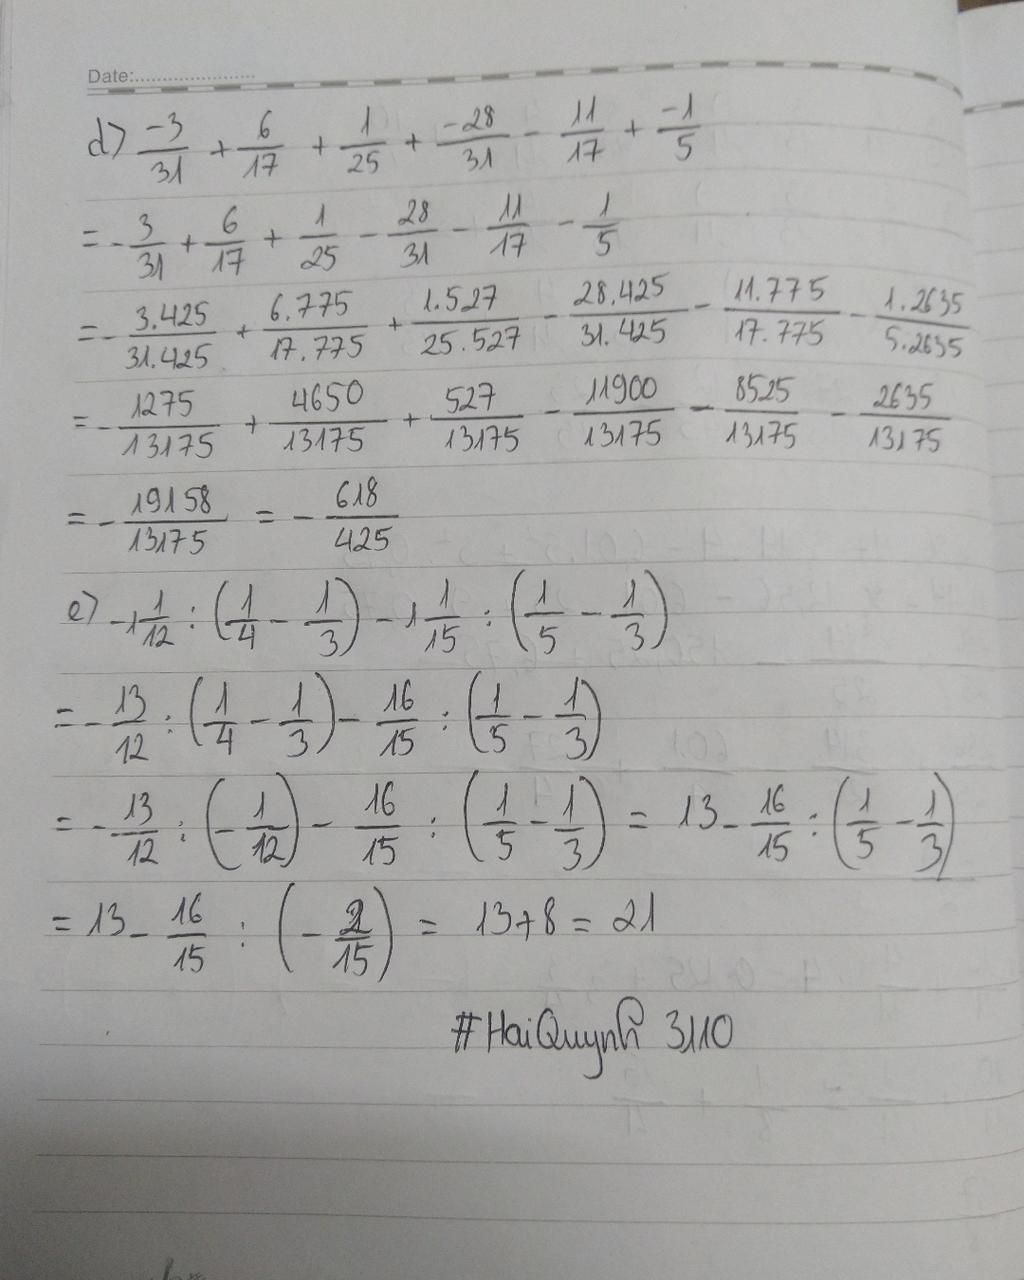 Date:
d) -3/31 + 6/17 + 1/25 + -28/31 - 11/17 + -1/5
= - 3/31 + 6/17 + 1/25 - 28/31 - 11/17 - 1/5
= - 3.425/31.425 + 6.775/17.775 + 1.527/25.527 - 28.425/31.425 - 11.775/17.775 - 1.2635/5.2635
= - 1275/13175 + 4650/13175 + 527/13175 - 11900/13175 - 8525/13175 - 2635/13175
= - 19158/13175 = - 618/425
e) -1 1/12 : (1/4 - 1/3) - 1 1/15 : (1/5 - 1/3)
= - 13/12 : (1/4 - 1/3) - 16/15 : (1/5 - 1/3)
= - 13/12 : (- 1/12) - 16/15 : (1/5 - 1/3) = 13 - 16/15 : (1/5 - 1/3)
= 13 - 16/15 : (- 2/15) = 13 + 8 = 21
#HaiQuynh 3110